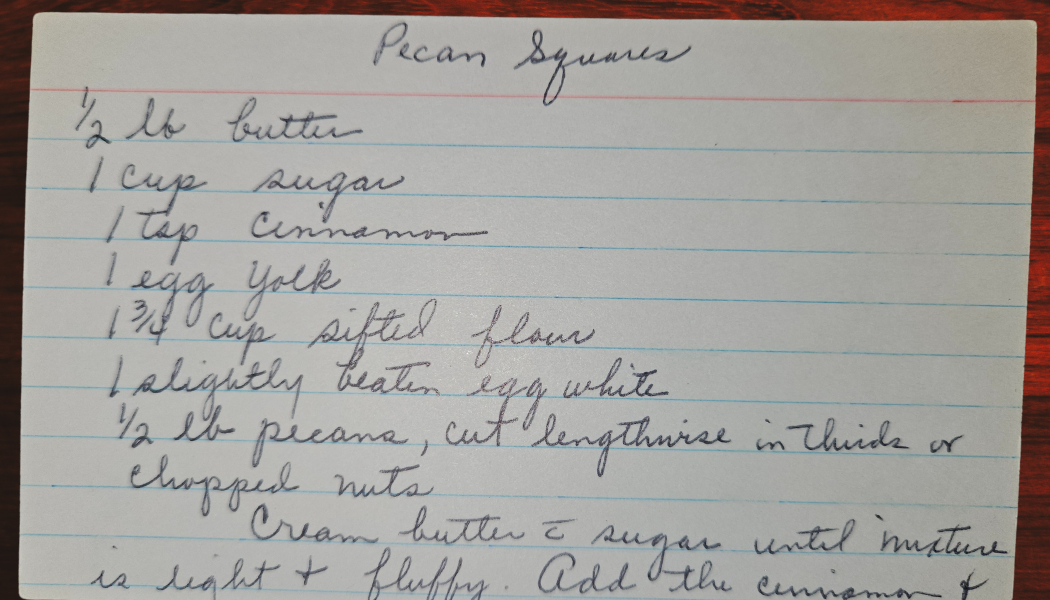 Pecan Squares
1/2 lb butter
1 cup sugar
1 tsp cinnamon
1 egg yolk
1 3/4 cup sifted flour
1 slightly beaten egg white
1/2 lb pecans, cut lengthwise in thirds or
chopped nuts
Cream butter c̄ sugar until mixture
is light + fluffy. Add the cinnamon +